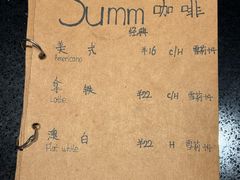 Summ咖啡
经典
美式 ¥16 C/H 雪莉杯
Americano
拿铁 ¥22 C/H 雪莉杯
Latte
澳白 ¥22 H 雪莉杯
Flat white